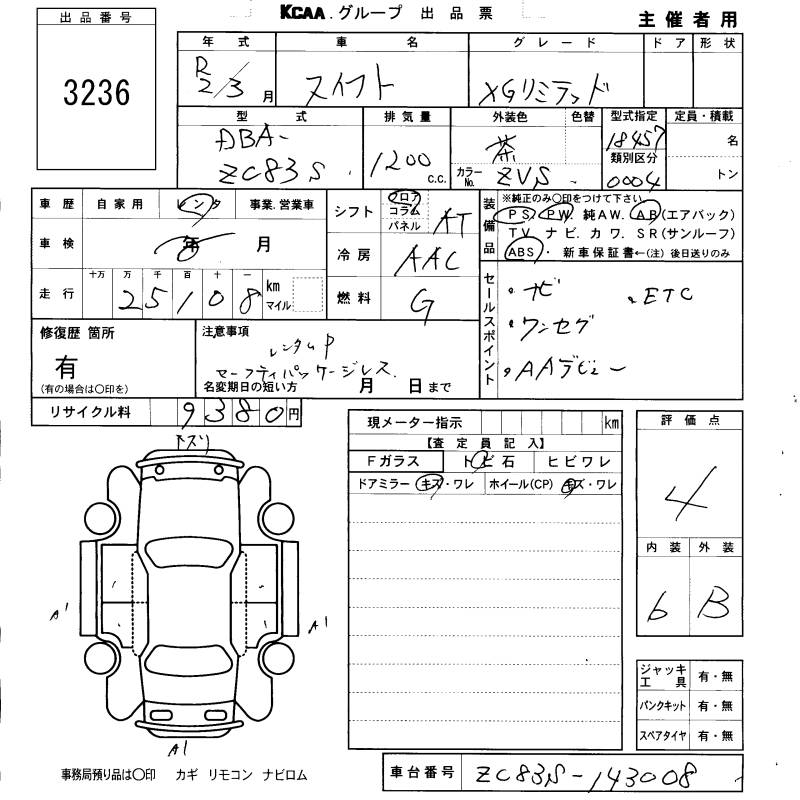 KCAA.グループ 出品票
主催者用
出品番号
3236
年式 車名 グレード ドア 形状
R2/3月 スイフト XGリミテッド
型式 排気量 外装色 色替 型式指定 定員・積載
DBA- 1200 c.c. 茶 18457 名
ZC83S カラーNo. ZVS 類別区分 0004 トン
車歴 自家用 レンタ 事業.営業車
車検 年 月
走行 十万 万 千 百 十 一 km マイル
25108
シフト フロア コラム パネル AT
冷房 AAC
燃料 G
装備品 ※純正のみ○印をつけて下さい
PS PW 純AW. AB(エアバック)
TV ナビ. カワ. SR(サンルーフ)
ABS・ 新車保証書←(注) 後日送りのみ
セールスポイント
・ナビ ・ETC
・ワンセグ
・AAデビュー
修復歴 箇所
有
(有の場合は○印を)
注意事項
レンタUP
セーフティパッケージレス.
名変期日の短い方 月 日まで
リサイクル料 9380円
キズリ
A1
A1
A1
現メーター指示 km
【査定員記入】
Fガラス トビ石 ヒビワレ
ドアミラー キズ・ワレ ホイール(CP) キズ・ワレ
評価点
4
内装 外装
6 B
ジャッキ工具 有・無
パンクキット 有・無
スペアタイヤ 有・無
事務局預り品は○印 カギ リモコン ナビロム
車台番号 ZC83S-143008